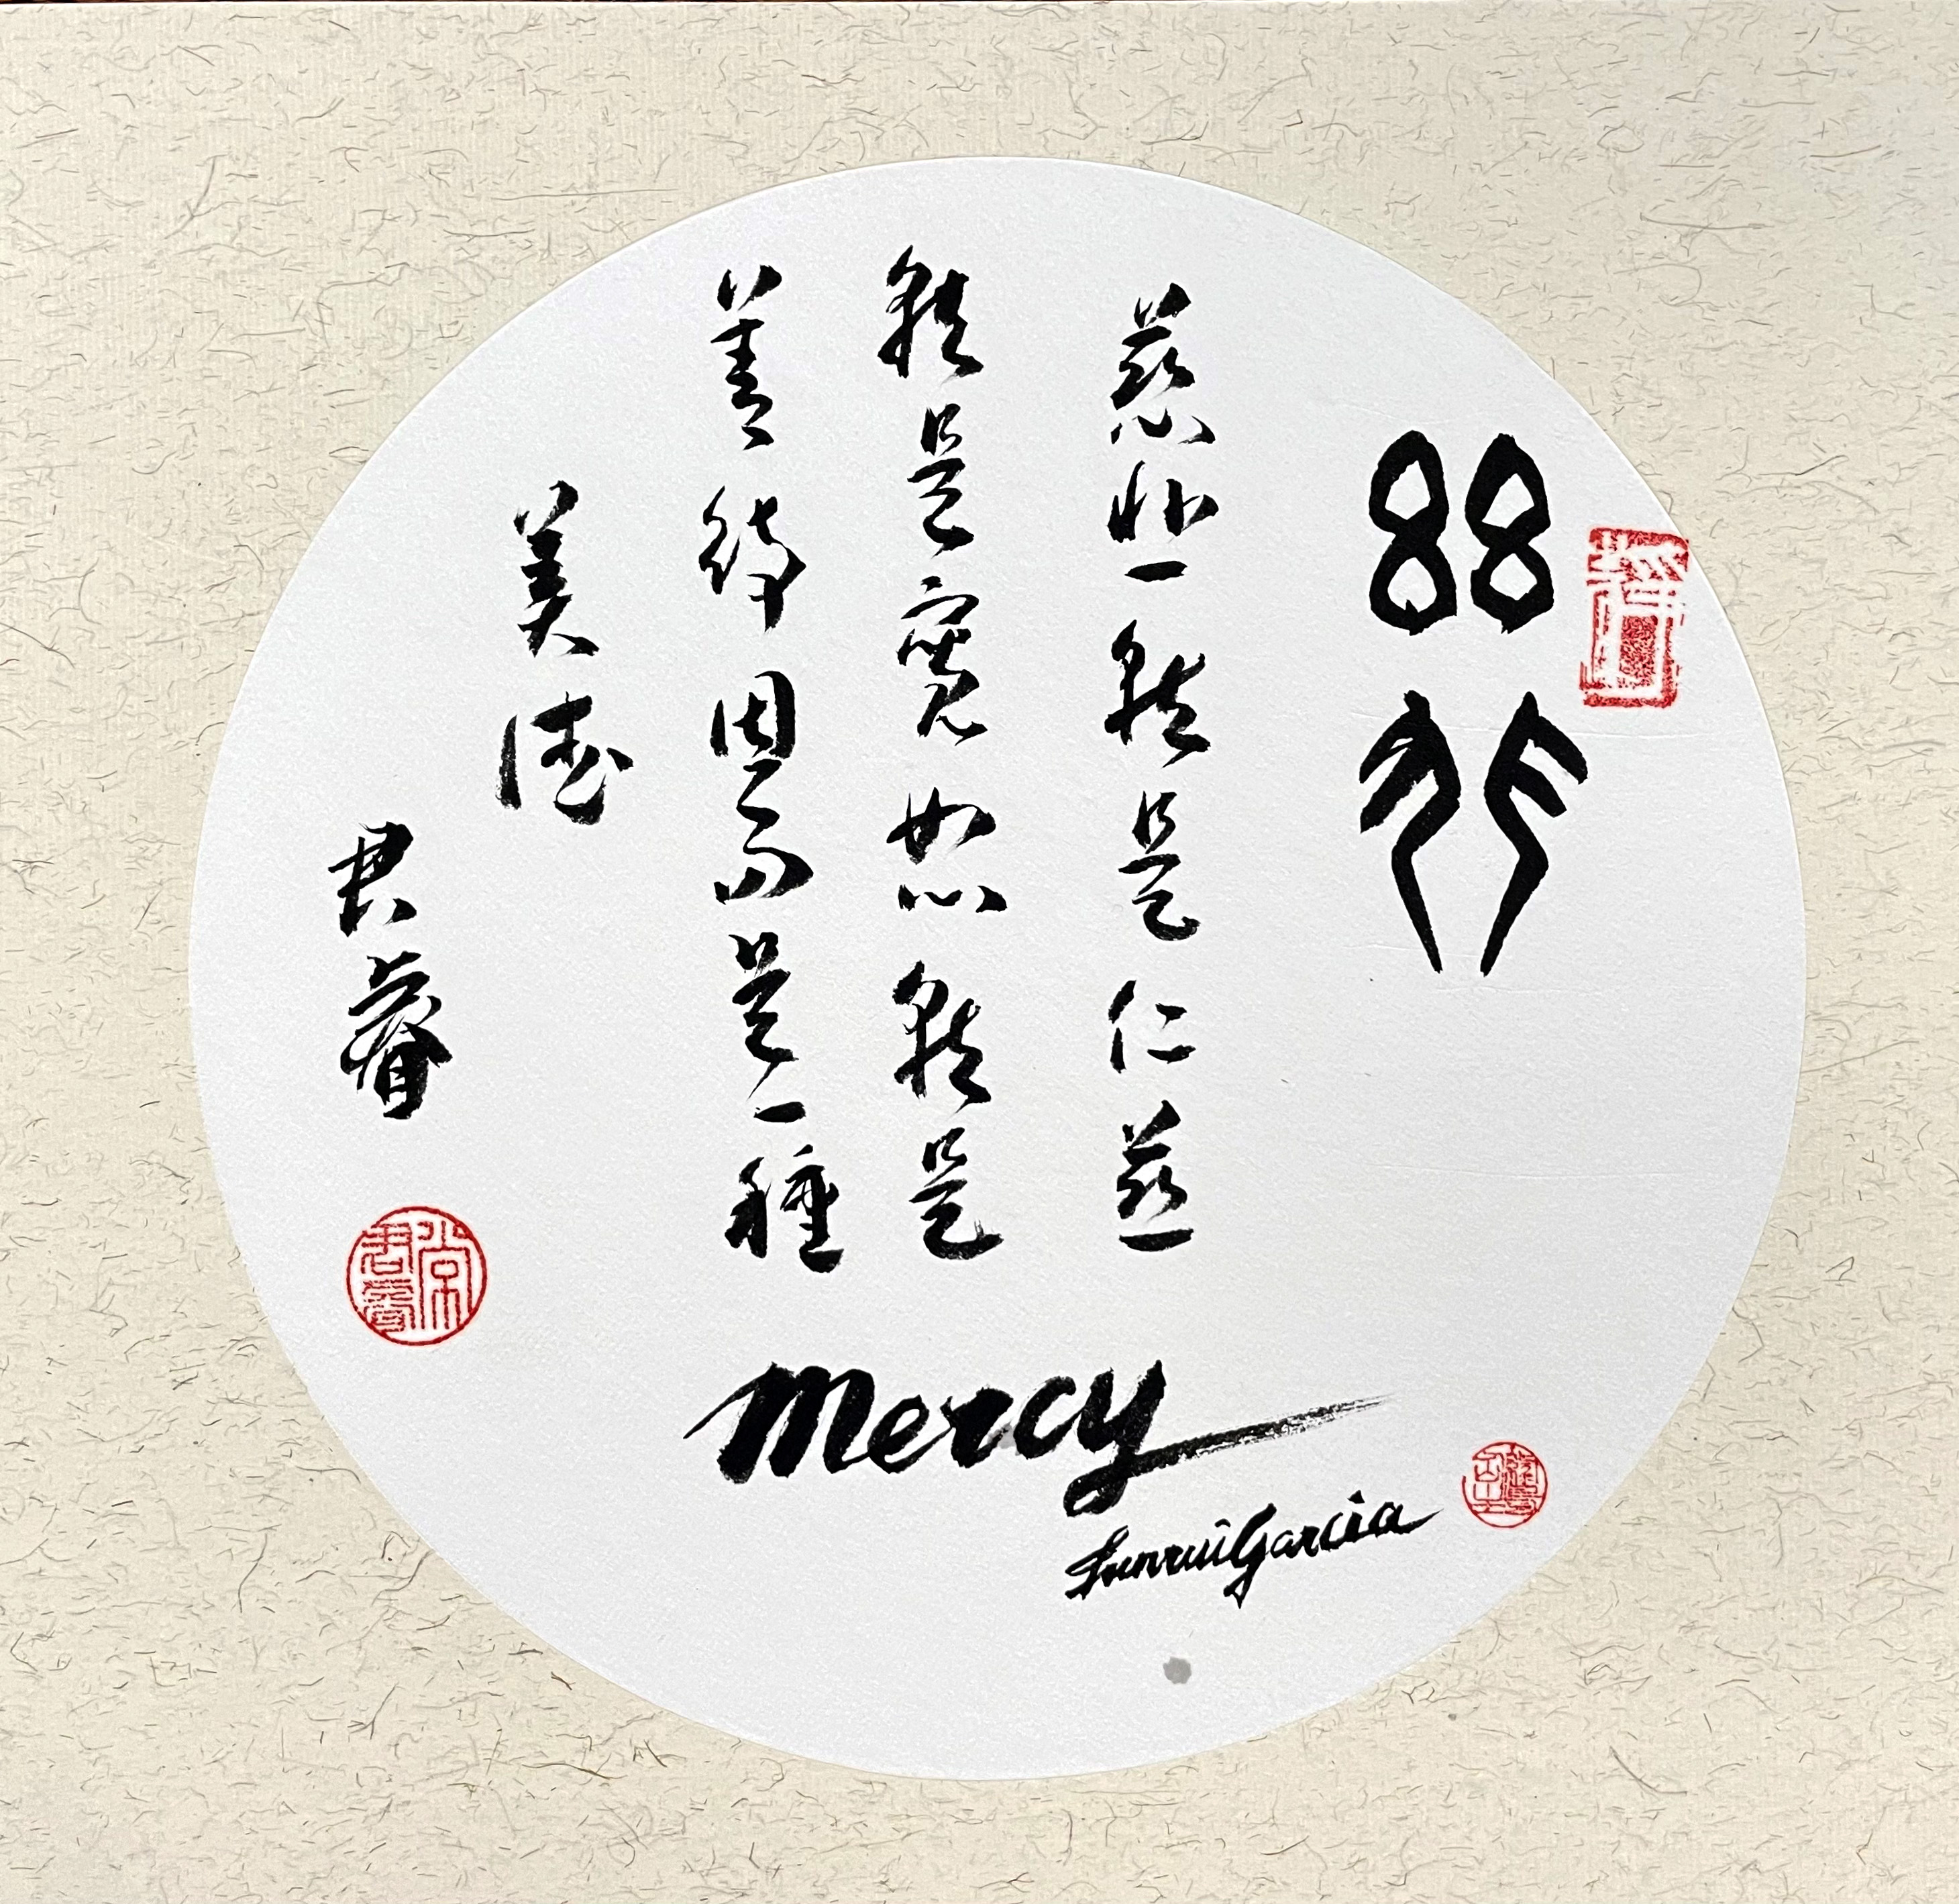 慈悲就是仁慈
就是寬恕就是
善待因為是一種
美德
君睿
常君睿
mercy
Junrui Garcia